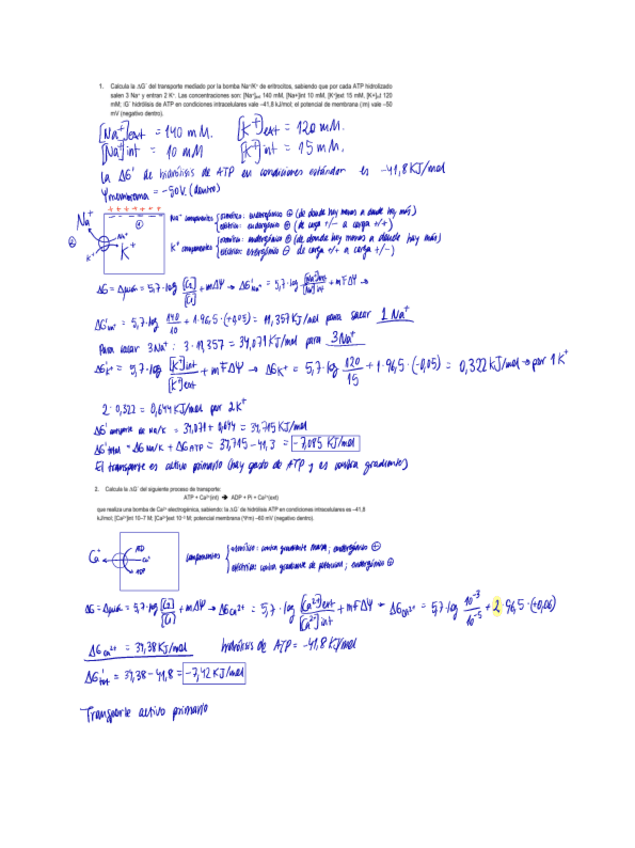 1. Calcula la ΔG´ del transporte mediado por la bomba Na+/K+ de eritrocitos, sabiendo que por cada ATP hidrolizado
salen 3 Na+ y entran 2 K+. Las concentraciones son: [Na+]ext 140 mM, [Na+]int 10 mM, [K+]ext 15 mM, [K+]int 120
mM; G´ hidrólisis de ATP en condiciones intracelulares vale –41,8 kJ/mol; el potencial de membrana (m) vale –50
mV (negativo dentro).
[Na+]ext = 140 mM. [K+]ext = 120 mM.
[Na+]int = 10 mM [K+]int = 15 mM.
La ΔG' de hidrólisis de ATP en condiciones estándar es -41,8 KJ/mol
Ψmembrana = -50V. (dentro)
+ + + + + + + +
Na+ Na+ componentes { osmótico: endergónico ⊕ (de donde hay menos a donde hay más)
eléctrico: endergónico ⊕ (de carga +/- a carga +/+)
Na+ K+ K+ K+ componentes { osmótico: endergónico ⊕ (de donde hay menos a donde hay más)
eléctrico: exergónico ⊖ de carga +/+ a carga +/-)
ΔG = Δμ = 5,7·log [C2]/[C1] + mΔΨ → ΔG'Na+ = 5,7·log [Na+]ext/[Na+]int + mFΔΨ →
ΔG'Na+ = 5,7·log 140/10 + 1·96,5·(+0,05) = 11,357 KJ/mol para sacar 1 Na+
Para sacar 3Na+: 3·11,357 = 34,071 KJ/mol para 3Na+
ΔG'K+ = 5,7·log [K+]int/[K+]ext + mFΔΨ → ΔGK+ = 5,7·log 120/15 + 1·96,5·(-0,05) = 0,322 KJ/mol → por 1 K+
2·0,322 = 0,644 KJ/mol por 2K+
ΔG' Na/K = 34,071 + 0,644 = 34,715 KJ/mol
ΔG'total = ΔG Na/K + ΔG ATP = 34,715 - 41,8 = -7,085 KJ/mol
El transporte es activo primario (hay gasto de ATP y es contra gradientes)
2. Calcula la ΔG´ del siguiente proceso de transporte:
ATP + Ca2+(int) → ADP + Pi + Ca2+(ext)
que realiza una bomba de Ca2+ electrogénica, sabiendo: la G´ de hidrólisis ATP en condiciones intracelulares es –41,8
kJ/mol; [Ca2+]int 10–7 M; [Ca2+]ext 10-3 M; potencial membrana (Ψm) –60 mV (negativo dentro).
Ca+ Ca+ ADP componentes { osmótico: contra gradiente ; endergónico ⊕
eléctrico: contra gradiente de potencial; endergónico ⊕
ΔG = Δμ = 5,7·log [C2]/[C1] + mΔΨ → ΔG Ca2+ = 5,7·log [Ca2+]ext/[Ca2+]int + mFΔΨ → ΔG Ca2+ = 5,7·log 10-3/10-5 + 2·96,5·(+0,06)
ΔG Ca2+ = 34,38 KJ/mol hidrólisis de ATP = -41,8 KJ/mol
ΔG'tot = 34,38 - 41,8 = -7,42 KJ/mol
Transporte activo primario